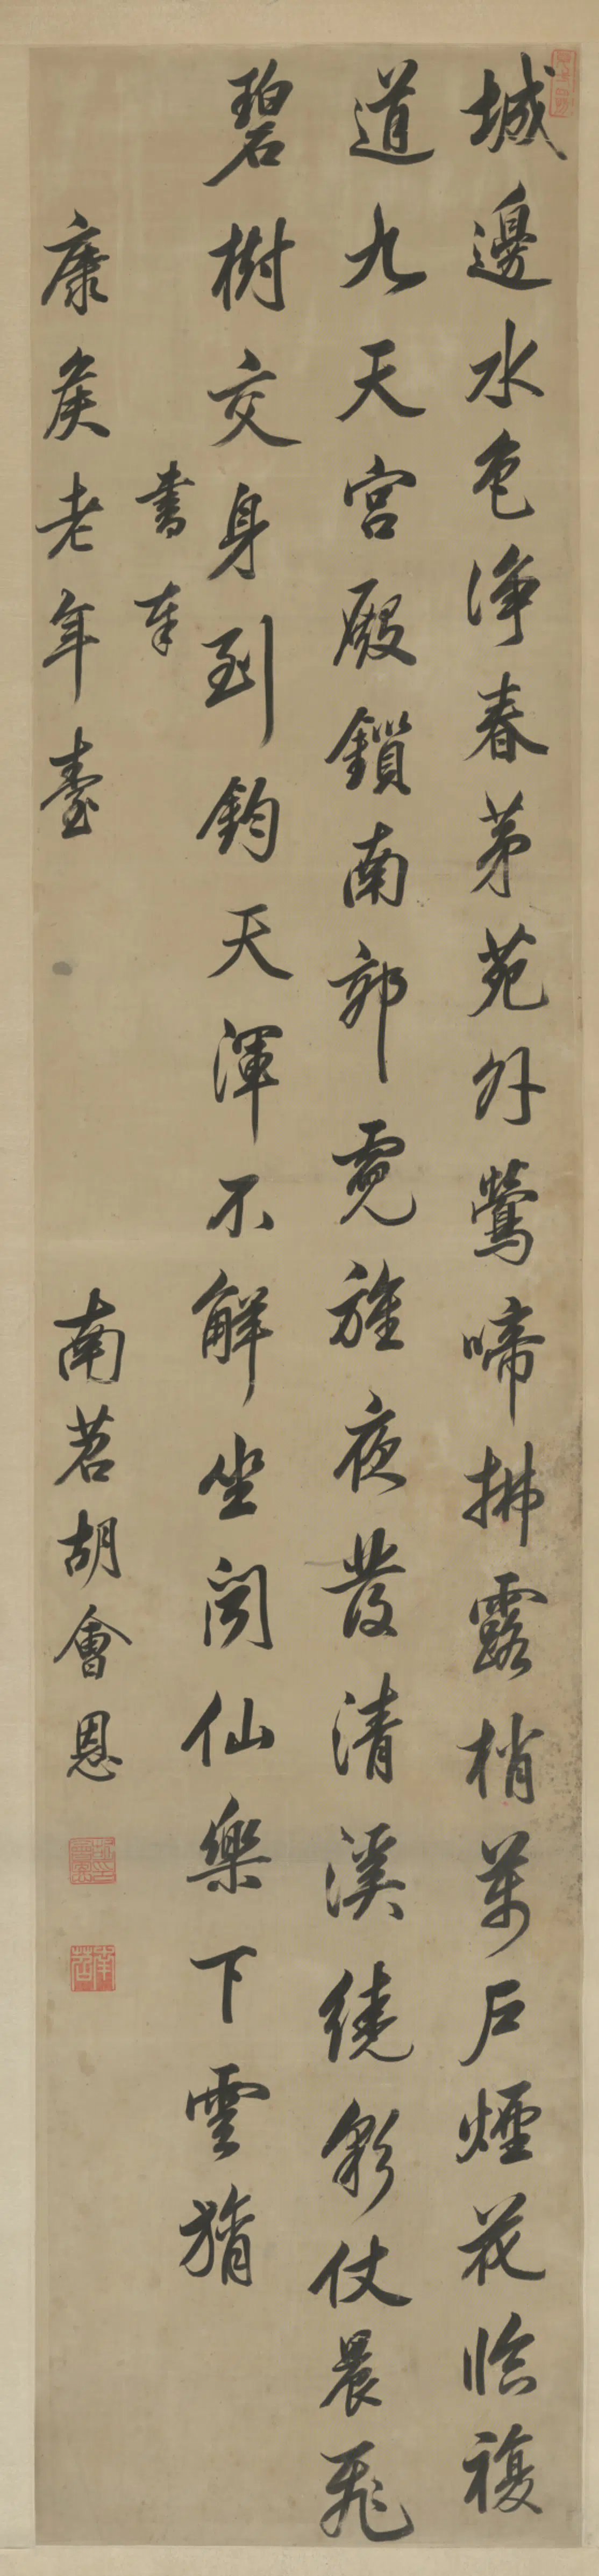 城邊水色淨春茅苑外鶯啼拂露梢萬戶煙花臨複
道九天宮殿鎖南郊霓旌夜發清溪繞彩仗晨飛
碧樹交身到鈞天渾不解坐聞仙樂下雲旓
書奉
康侯老年臺
南苕胡會恩
南苕